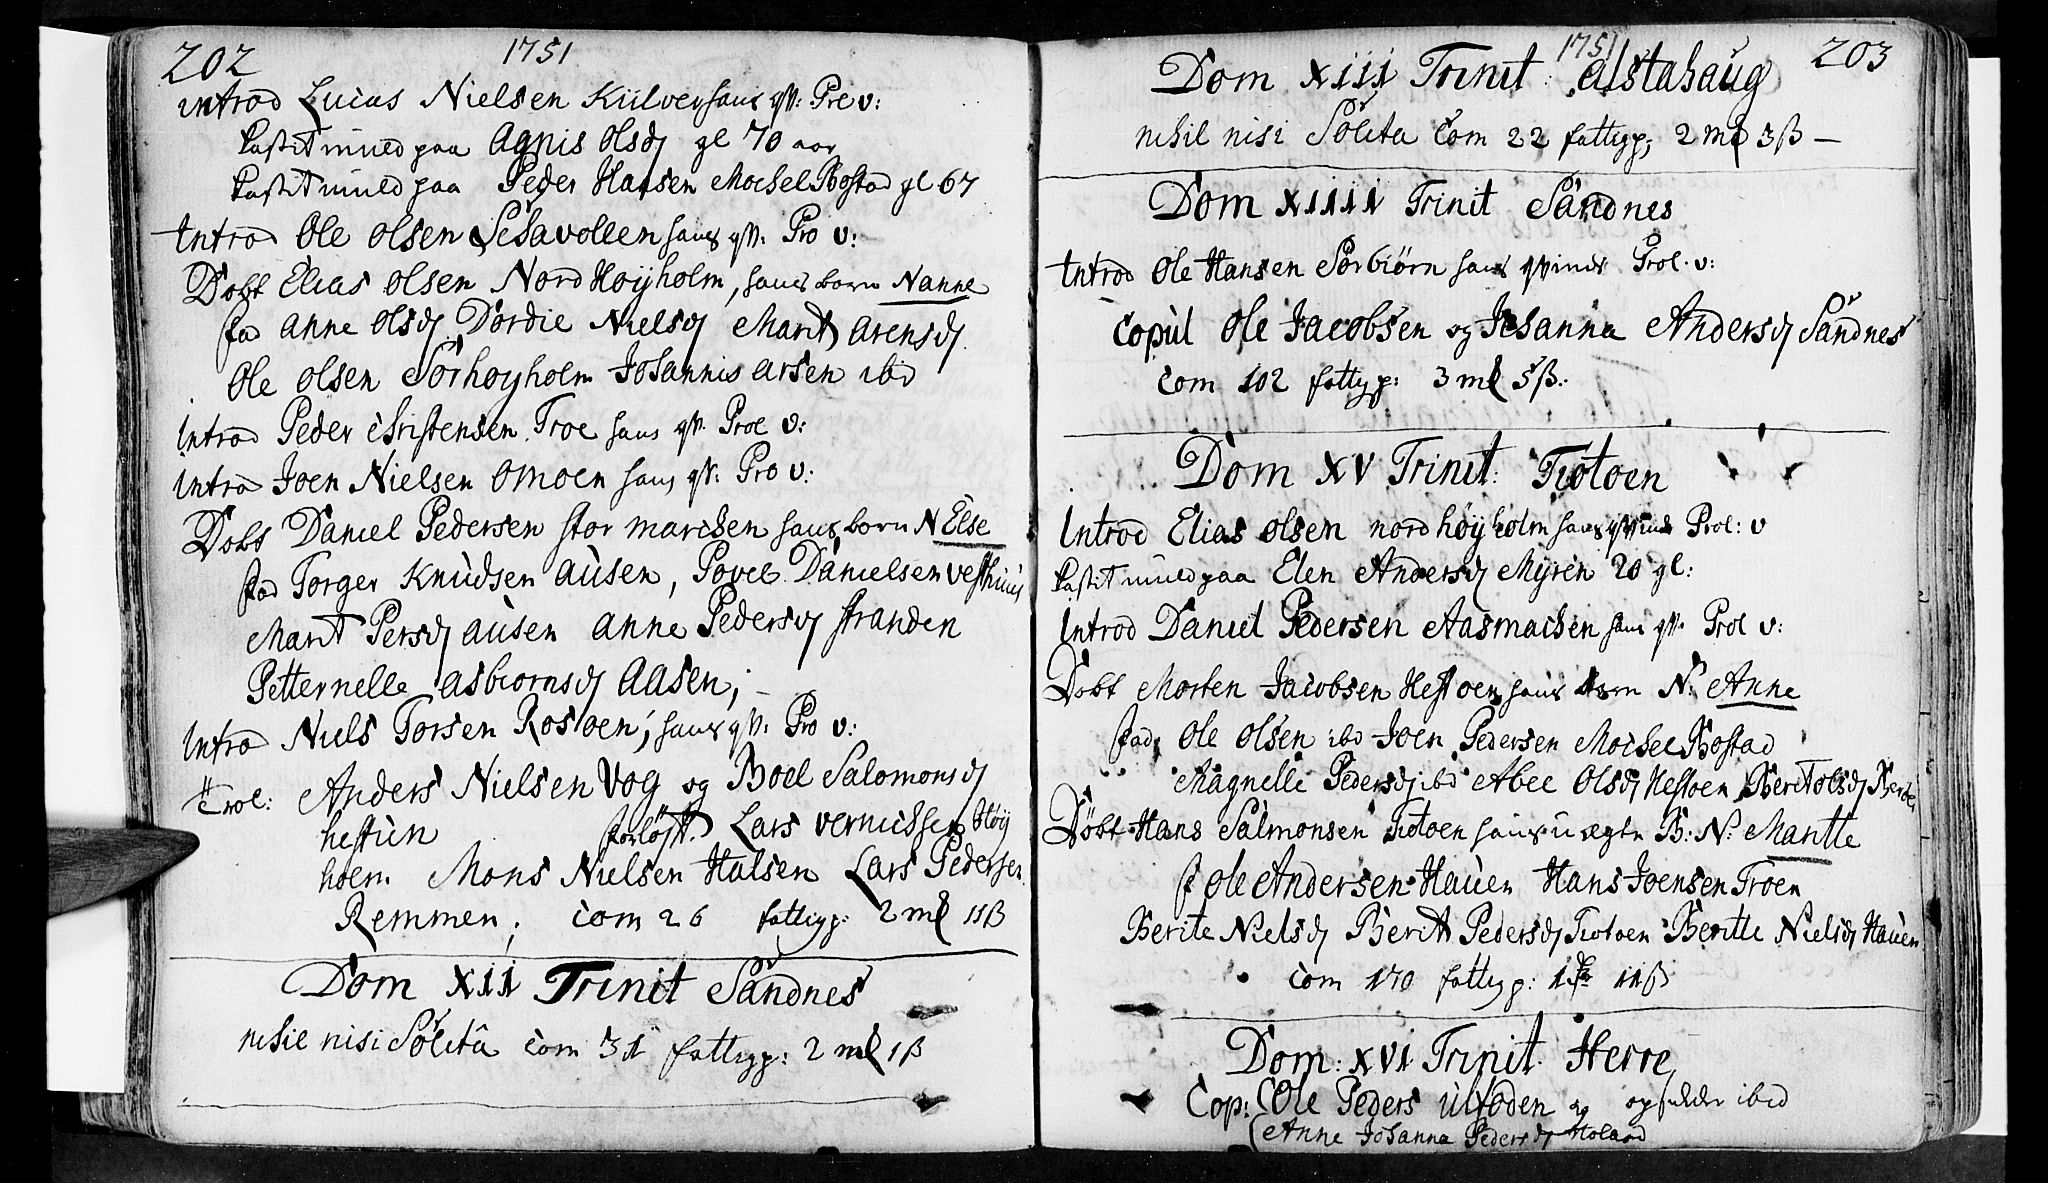 202
1751
introd Lucas Nielsen Kulver hans qv: Pro v:
kastit muld paa Agnis Olsd gl 70 aar
kastit muld paa Peder Hansen Mochel Bostad gl 67
Introd Ole Olsen Lehavollen hans qv: Pro v:
Døbt Elias Olsen Nord Hoyholm, hans barn Nanne
fad Anne Olsd, Dordie Nielsd Marit Arensd
Ole Olsen Sørhoyholm Johannis Arsen ibid
Introd Peder Christensen Troe hans qv. Prol v:
Introd Joen Nielsen Omoen hans qv: Pro v:
Døbt Daniel Pedersen stor marchen hans barn N Else
fad Torger Knudsen Ausen, Povel Danielsen
Marit Persd Ausen Anne Pedersd stranden
Petternelle Asbiornsd Aasen;
Introd Niels Torsen Rosoen; hans qv: Pro v:
Trol: Anders Nielsen Vog og Boel Salomonsd
hestun forløft. Lars Høy
holm Mons Nielsen Halsen Lars Pedersen
Remmen; com 26 fattigp: 2 mk 11 ß
Dom XII Trinit Sandnes
nihil nisi Solita com 31 fattigp: 2 mk 1 ß
1751
203
Dom XIII Trinit: Alstahaug
nihil nisi Solita com 22 fattigp: 2 mk 3 ß —
Dom XIIII Trinit Sandnes
Introd Ole Hansen Sorbiørn hans qvinde Prol. v:
Copul Ole Jacobsen og Johanna Andersd Sandnes
com 102 fattigp: 3 mk 5 ß:
Dom XV Trinit: Tiotoen
Introd Elias Olsen nord høyholm hans qvinde Prol: v
kastit muld paa Elen Andersd Myren 20 gl:
Introd Daniel Pedersen Aasmachen hans qv. Prol v:
Døbt Morten Jacobsen Hestoen hans barn N: Anne
fad: Ole Olsen ibd Joen Pedersen Mochel Bostad
Magnelle Pedersd ibd Abel Olsd Hestoen Berit Olsd
Døbt Hans Salmonsen Tiotoen hans uægte B: N: Marite
f Ole Andersen Hauen Hans Joensen Troen
Berite Nielsd Berit Pedersd Tiotoen Beritte Nielsd Hauen
com 170 fattigp: 1 11 ß
Dom: XVI Trinit. Herre
Cop: (Ole Peders Ulfoden og ibid
(Anne Johanna Pedersd Holand